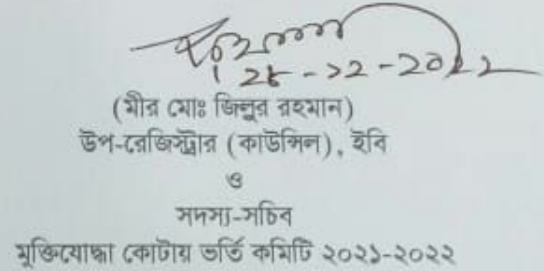 ২৮-১২-২০২২
(মীর মোঃ জিল্লুর রহমান)
উপ-রেজিস্ট্রার (কাউন্সিল), ইবি
ও
সদস্য-সচিব
মুক্তিযোদ্ধা কোটায় ভর্তি কমিটি ২০২১-২০২২